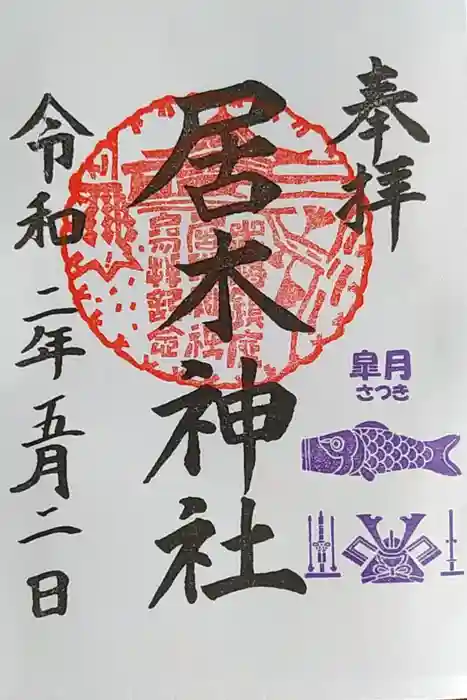 奉拝
居木神社
令和二年五月二日
皐月
さつき